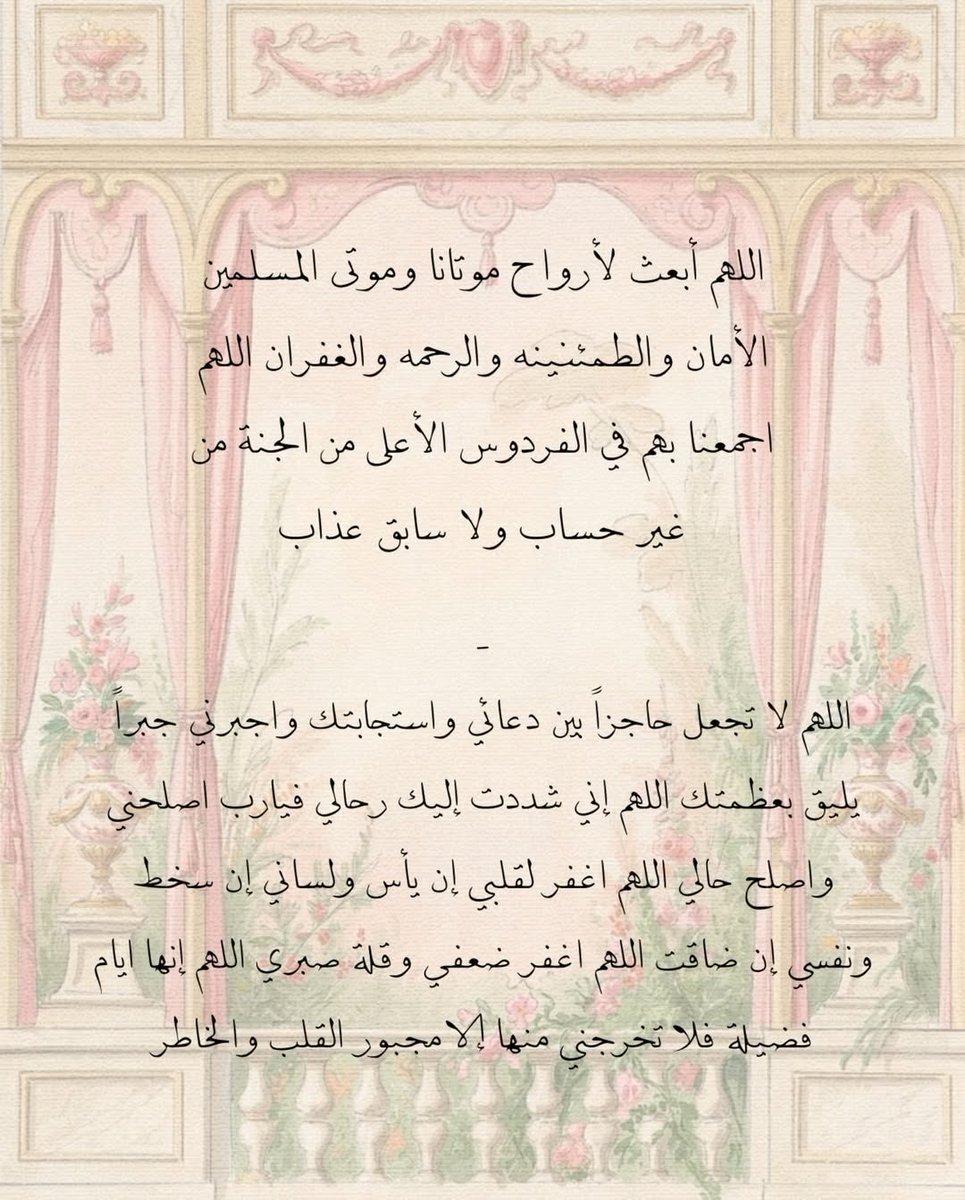 اللهم أبعث لأرواح موتانا وموتى المسلمين
الأمان والطمئنينه والرحمه والغفران اللهم
اجمعنا بهم في الفردوس الأعلى من الجنة من
غير حساب ولا سابق عذاب
-
اللهم لا تجعل حاجزاً بين دعائي واستجابتك واجبرني جبراً
يليق بعظمتك اللهم إني شددت إليك رحالي فيارب اصلحني
واصلح حالي اللهم اغفر لقلبي إن يأس ولساني إن سخط
ونفسي إن ضاقت اللهم اغفر ضعفي وقلة صبري اللهم إنها ايام
فضيلة فلا تخرجني منها إلا مجبور القلب والخاطر